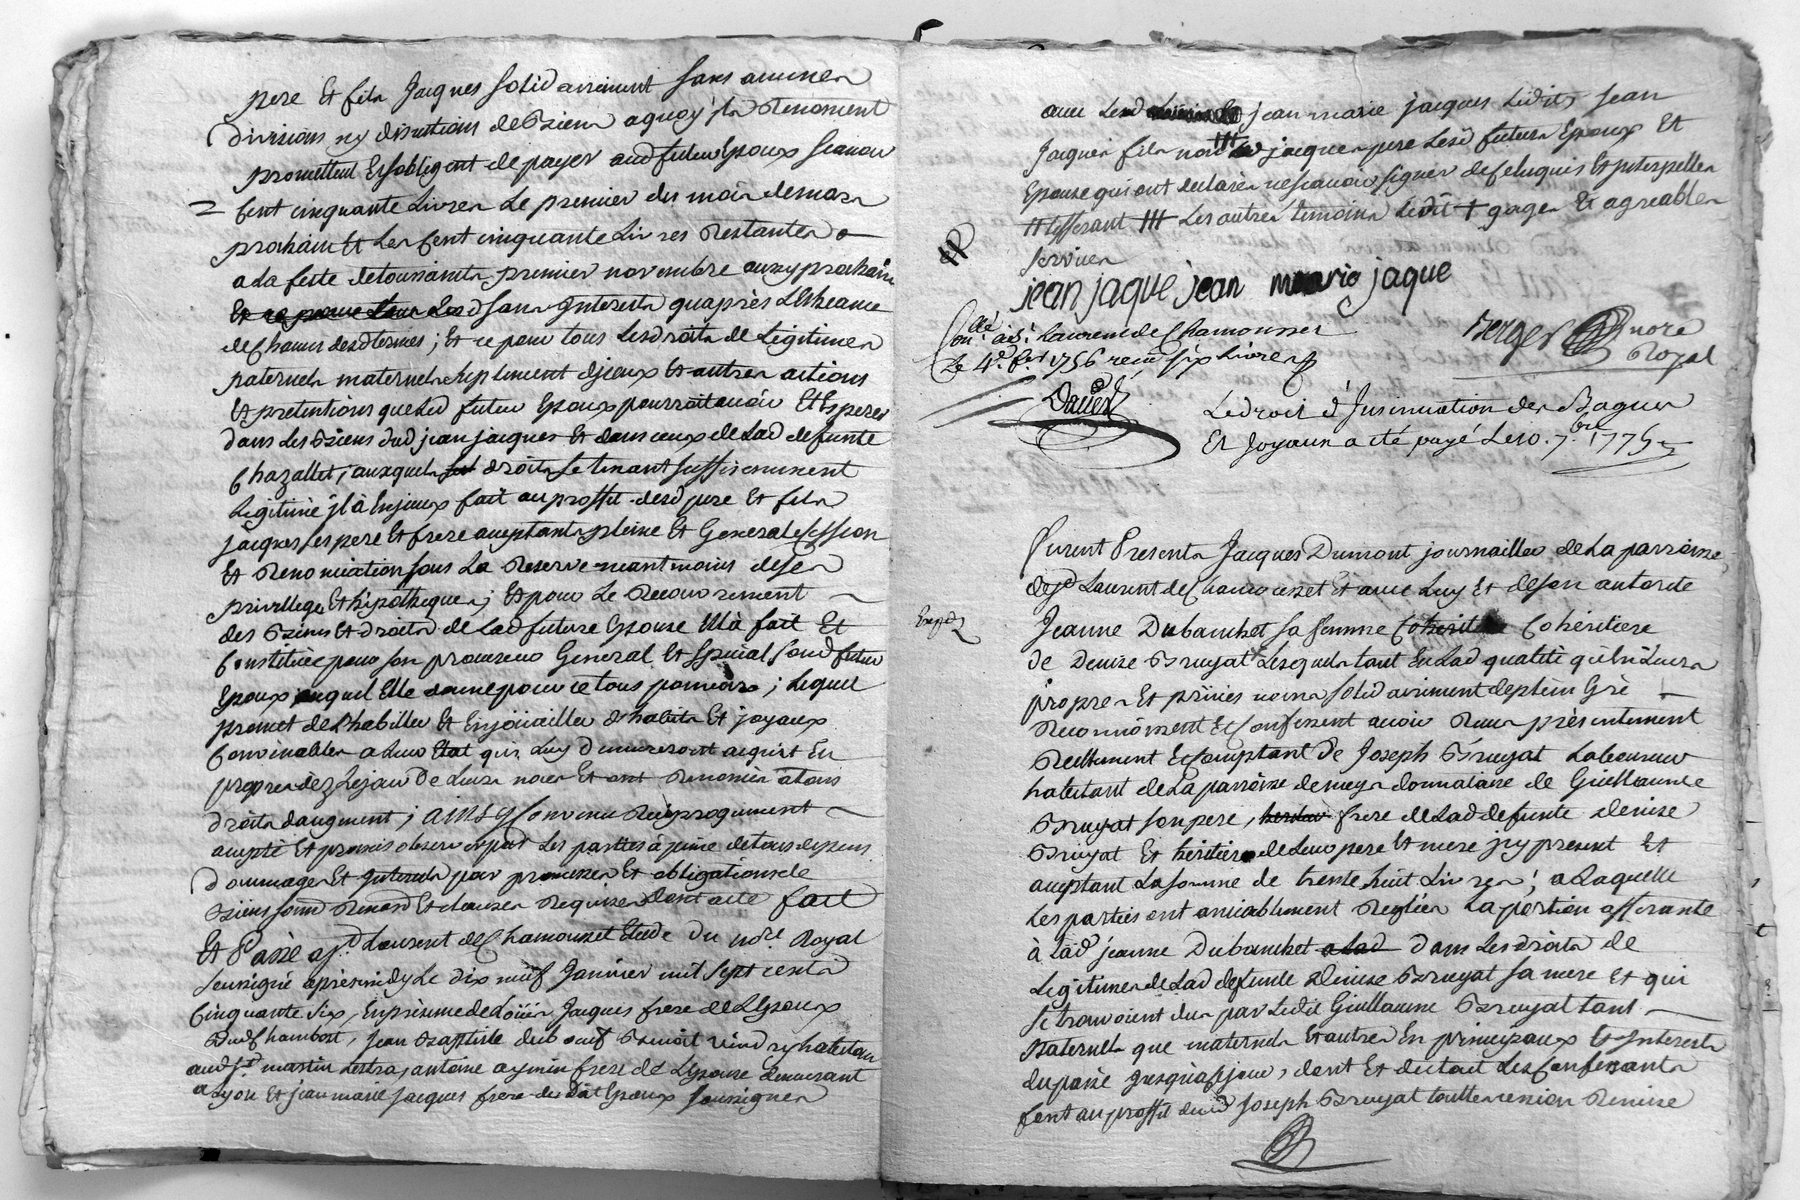 pere Et fils Jacques solidairement sans aucune
division ny discution de biens aquoy jls Renoncent
promettent Ets'obligent de payer aud futeur Epoux scavoir
Cent cinquante Livres Le premier du mois de mars
prochain Et Les Cent cinquante Livres Restantes
a La feste de toussaints premier novembre aussy prochain
sans Interests qu'après L'Echeance
de Chacun desd termes ; Et ce pour tous Lesd droits de Legitimes
paternels maternels suplement d'jceux Et autres actions
Et pretentions que Led futeur Epoux pourroit avoir Et Esperer
dans Les biens dud jean jacques Et dans ceux de Lad defunte
Chazallet, auxquels droits se tenant suffisemment
Legitimé jl à Enjceux fait au proffit desd pere Et fils
jacques ses pere Et frere aceptants pleine Et Generale Cession
Et Renonciation sous La Reserve neantmoins de ses
privilleges Et hipotheques ; Et pour Le Recouvrement
des biens Et droits de Lad future Epouse Ella fait Et
Constitüé pour son procureur General Et special Led futeur
Epoux auquel Elle donne pour ce tous pouvoirs ; Lequel
promet de L'habiller Et Enjoüailler d'habits Et joyaux
Convenables a Leur Etat qui Luy demeureront acquis En
propre dez Le jour De Leurs noces Et ont Renoncé à tous
droits daugment ; ainsy Convenu Reciproquement
acepté Et promis observer par Les parties à peine de tous depens
Dommages Et Interests par promesses Et obligations de
biens soumis Renon Et clauses Requises dont acte fait
Et Passé a St Laurent de Chamousset Etude Du nore Royal
soussigné après midy Le dix neuf Janvier mil sept cents
Cinquante six, En presence de Loüis Jacques frere de L'Epoux
Dud Chambost, Jean Baptiste dubœuf Benoit vind ry habitan
aud St martin Lestra, antoine aymin frere de L'Epouse demeurant
a Lyon Et jean marie jacques frere dudit Epoux soussignes
avec Lesd jean marie jacques Ledit jean
Jacques fils non jacques pere Lesd futurs Epoux Et
Epouse qui ont declarés ne scavoir signer de ce Enquis Et jnterpellés
tisserant Les autres temoins Ledit gages Et agreables
services
jean jaque jean mario jaque
Berger nore
Royal
Conllé a St Laurent de Chamousset
Le 4e fer 1756 recu six Livres
Le droit d'Insinuation des Bagues
Et Joyaux a été payé Le 10. 7bre 1775
Furent Presents Jacques Dumont journaillier de La parroisse
de St Laurent de Chamousset Et avec Luy Et de son autorité
Exppé
Jeanne Dubanchet sa femme Cohéritière
de Denise Bruyat Lesquels tant En Lad qualité qu'En Leurs
propres Et privés noms solidairement de plein Gré
Reconnoissent Et Confessent avoir Receu présentement
Reellement Et Comptant de Joseph Bruyat Laboureur
habitant de La parroisse de meys donnataire de Guillaume
Bruyat son pere, frere de Lad defunte denise
Bruyat Et héritier de Leur pere Et mere jcy present Et
aceptant La somme de trente huit Livres ; a Laquelle
Les parties ont amiablement Reglées La portion afferante
à Lad jeanne Dubanchet dans Les droits de
Legitimes de Lad defunte denise Bruyat sa mere Et qui
se trouvoient dus par Ledit Guillaume Bruyat tant
Paternels que maternels Et autres En principaux Et Interests
du passé Jusqu'à ce jour, dont Et du tout Les Confessants
font au proffit dud Joseph Bruyat toutte cession Remise